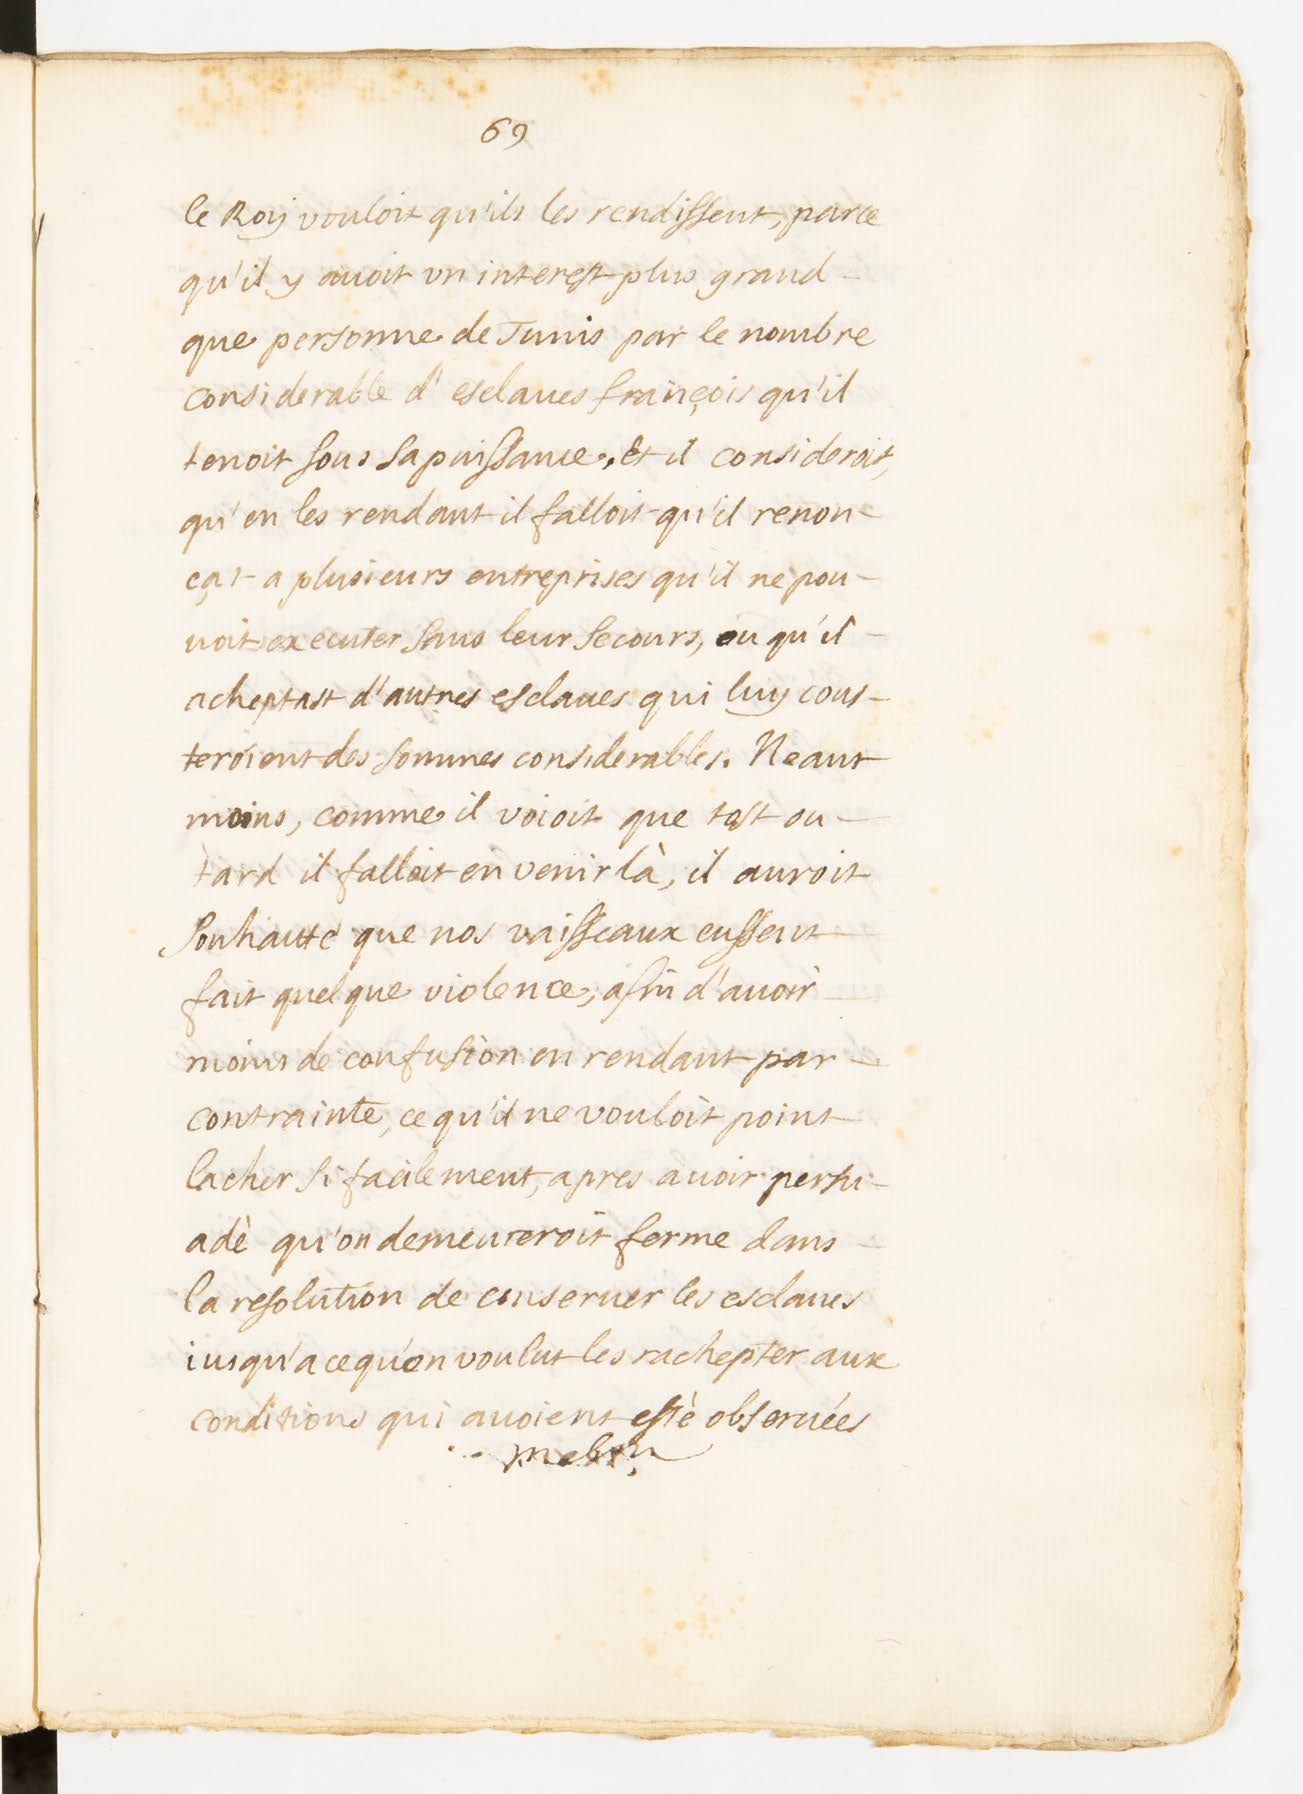 69
le Roy vouloit qu'ils les rendissent, parce
qu'il y auoit vn interest plus grand -
que personne de Tunis par le nombre
considerable d'esclaues françois qu'il
tenoit sous sa puissance, et il consideroit,
qu'en les rendant il falloit qu'il renon-
çat a plusieurs entreprises qu'il ne pou-
uoit executer sans leur secours, ou qu'il -
acheptast d'autres esclaues qui luy cous-
teroient des sommes considerables. Neant
moins, comme il voioit que tost ou -
tard il falloit en venir là, il auroit
souhaitté que nos vaisseaux eussent
fait quelque violence, afin d'auoir
moins de confusion en rendant par -
contrainte, ce qu'il ne vouloit point
lacher si facilement, apres auoir persu-
adè qu'on demeureroit ferme dans -
la resolution de conseruer les esclaues
iusqu'a ce qu'on voulut les rachepter aux
conditions qui auoient estè obseruées